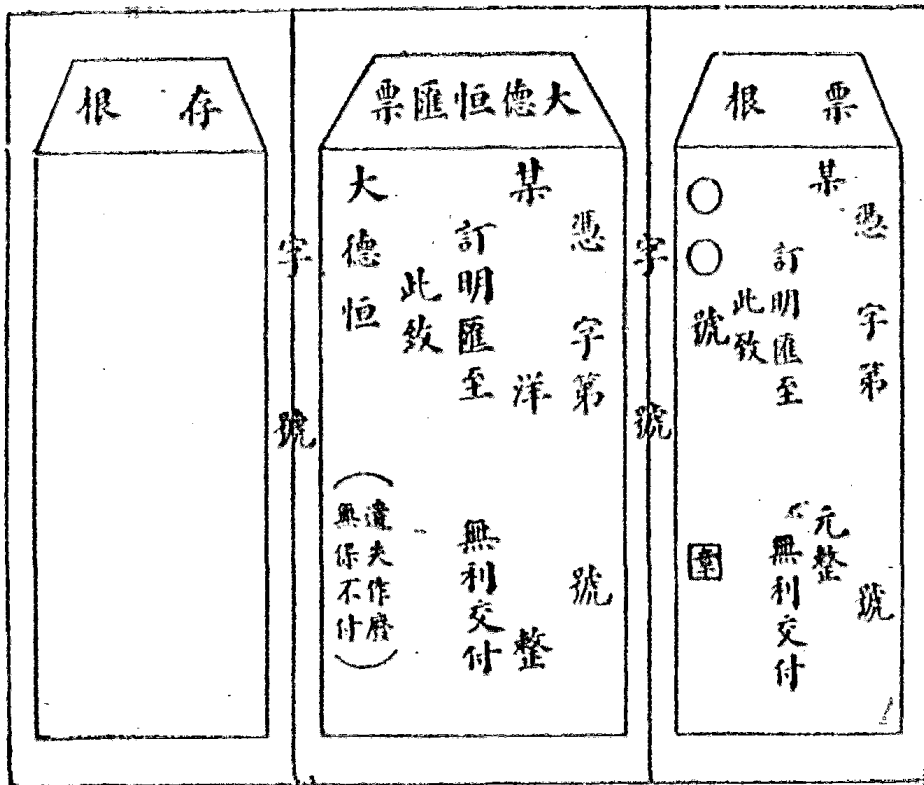 票根
憑 字第 號
某 元整
訂明匯至 無利交付
此致
○○號 章
字 號
大德恒匯票
憑 字第 號
某 洋 整
訂明匯至 無利交付
此致
大德恒
(遺失作廢
無保不付)
字 號
存根